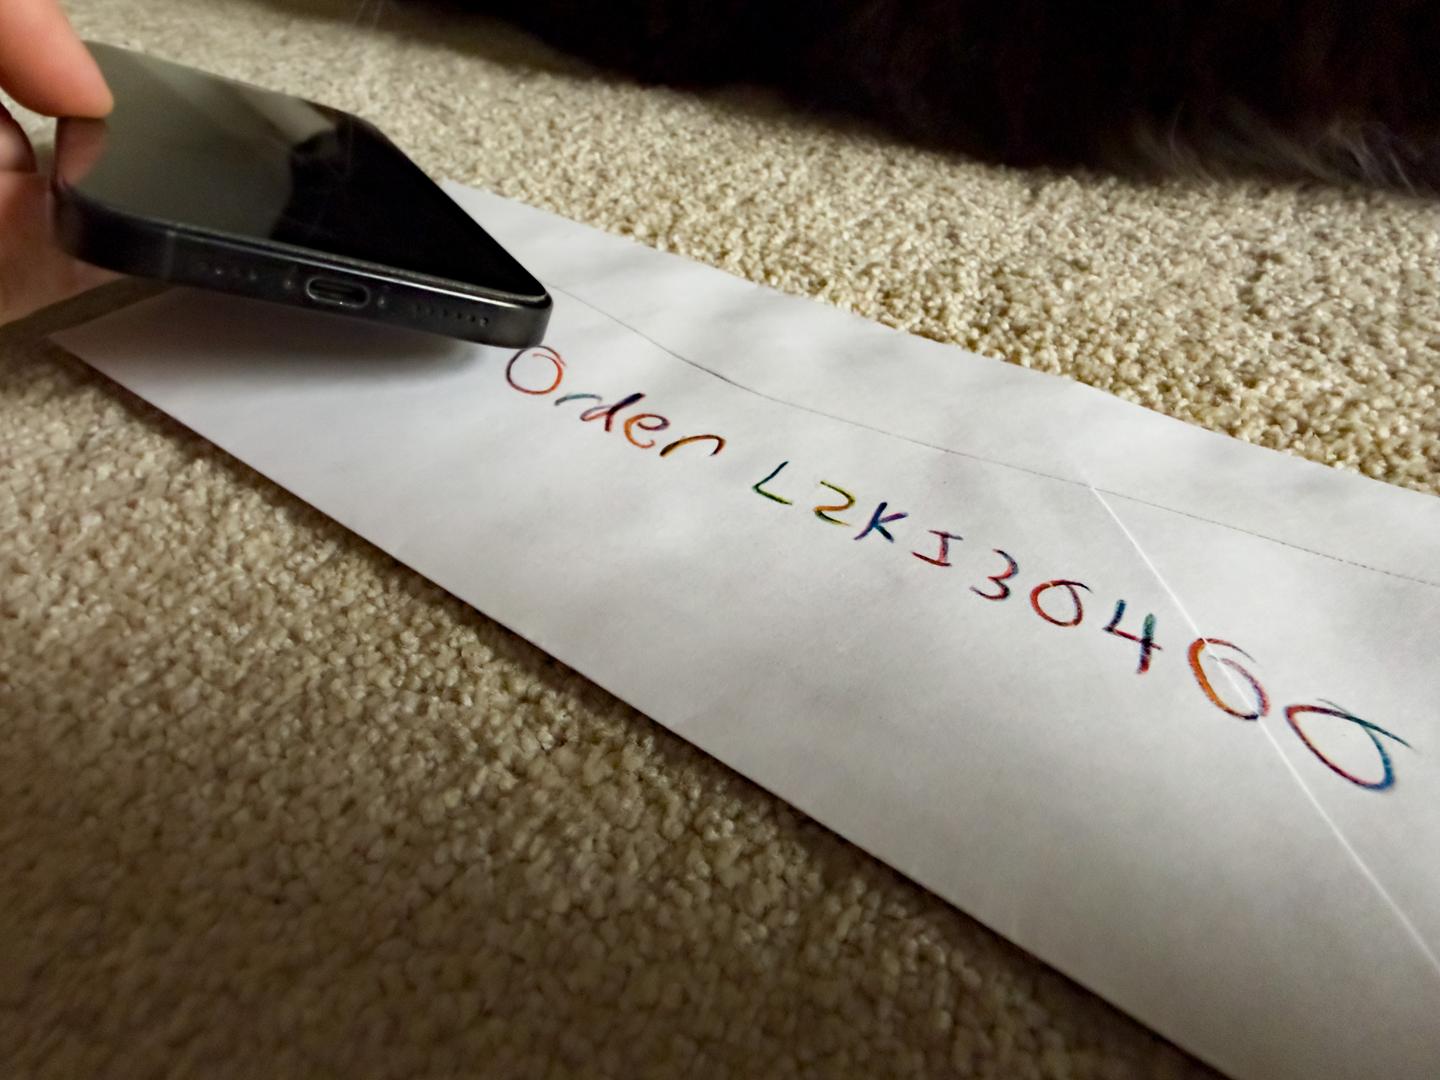 Order LZKI30460